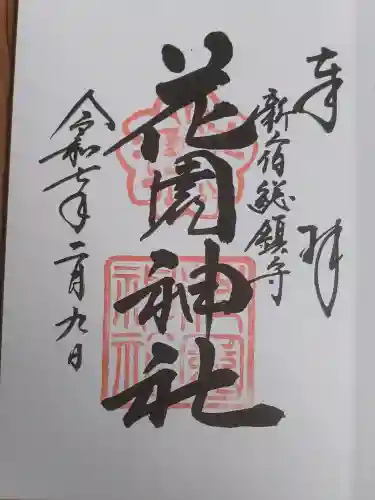 奉拝
新宿総鎮守
花園神社
令和七年二月九日